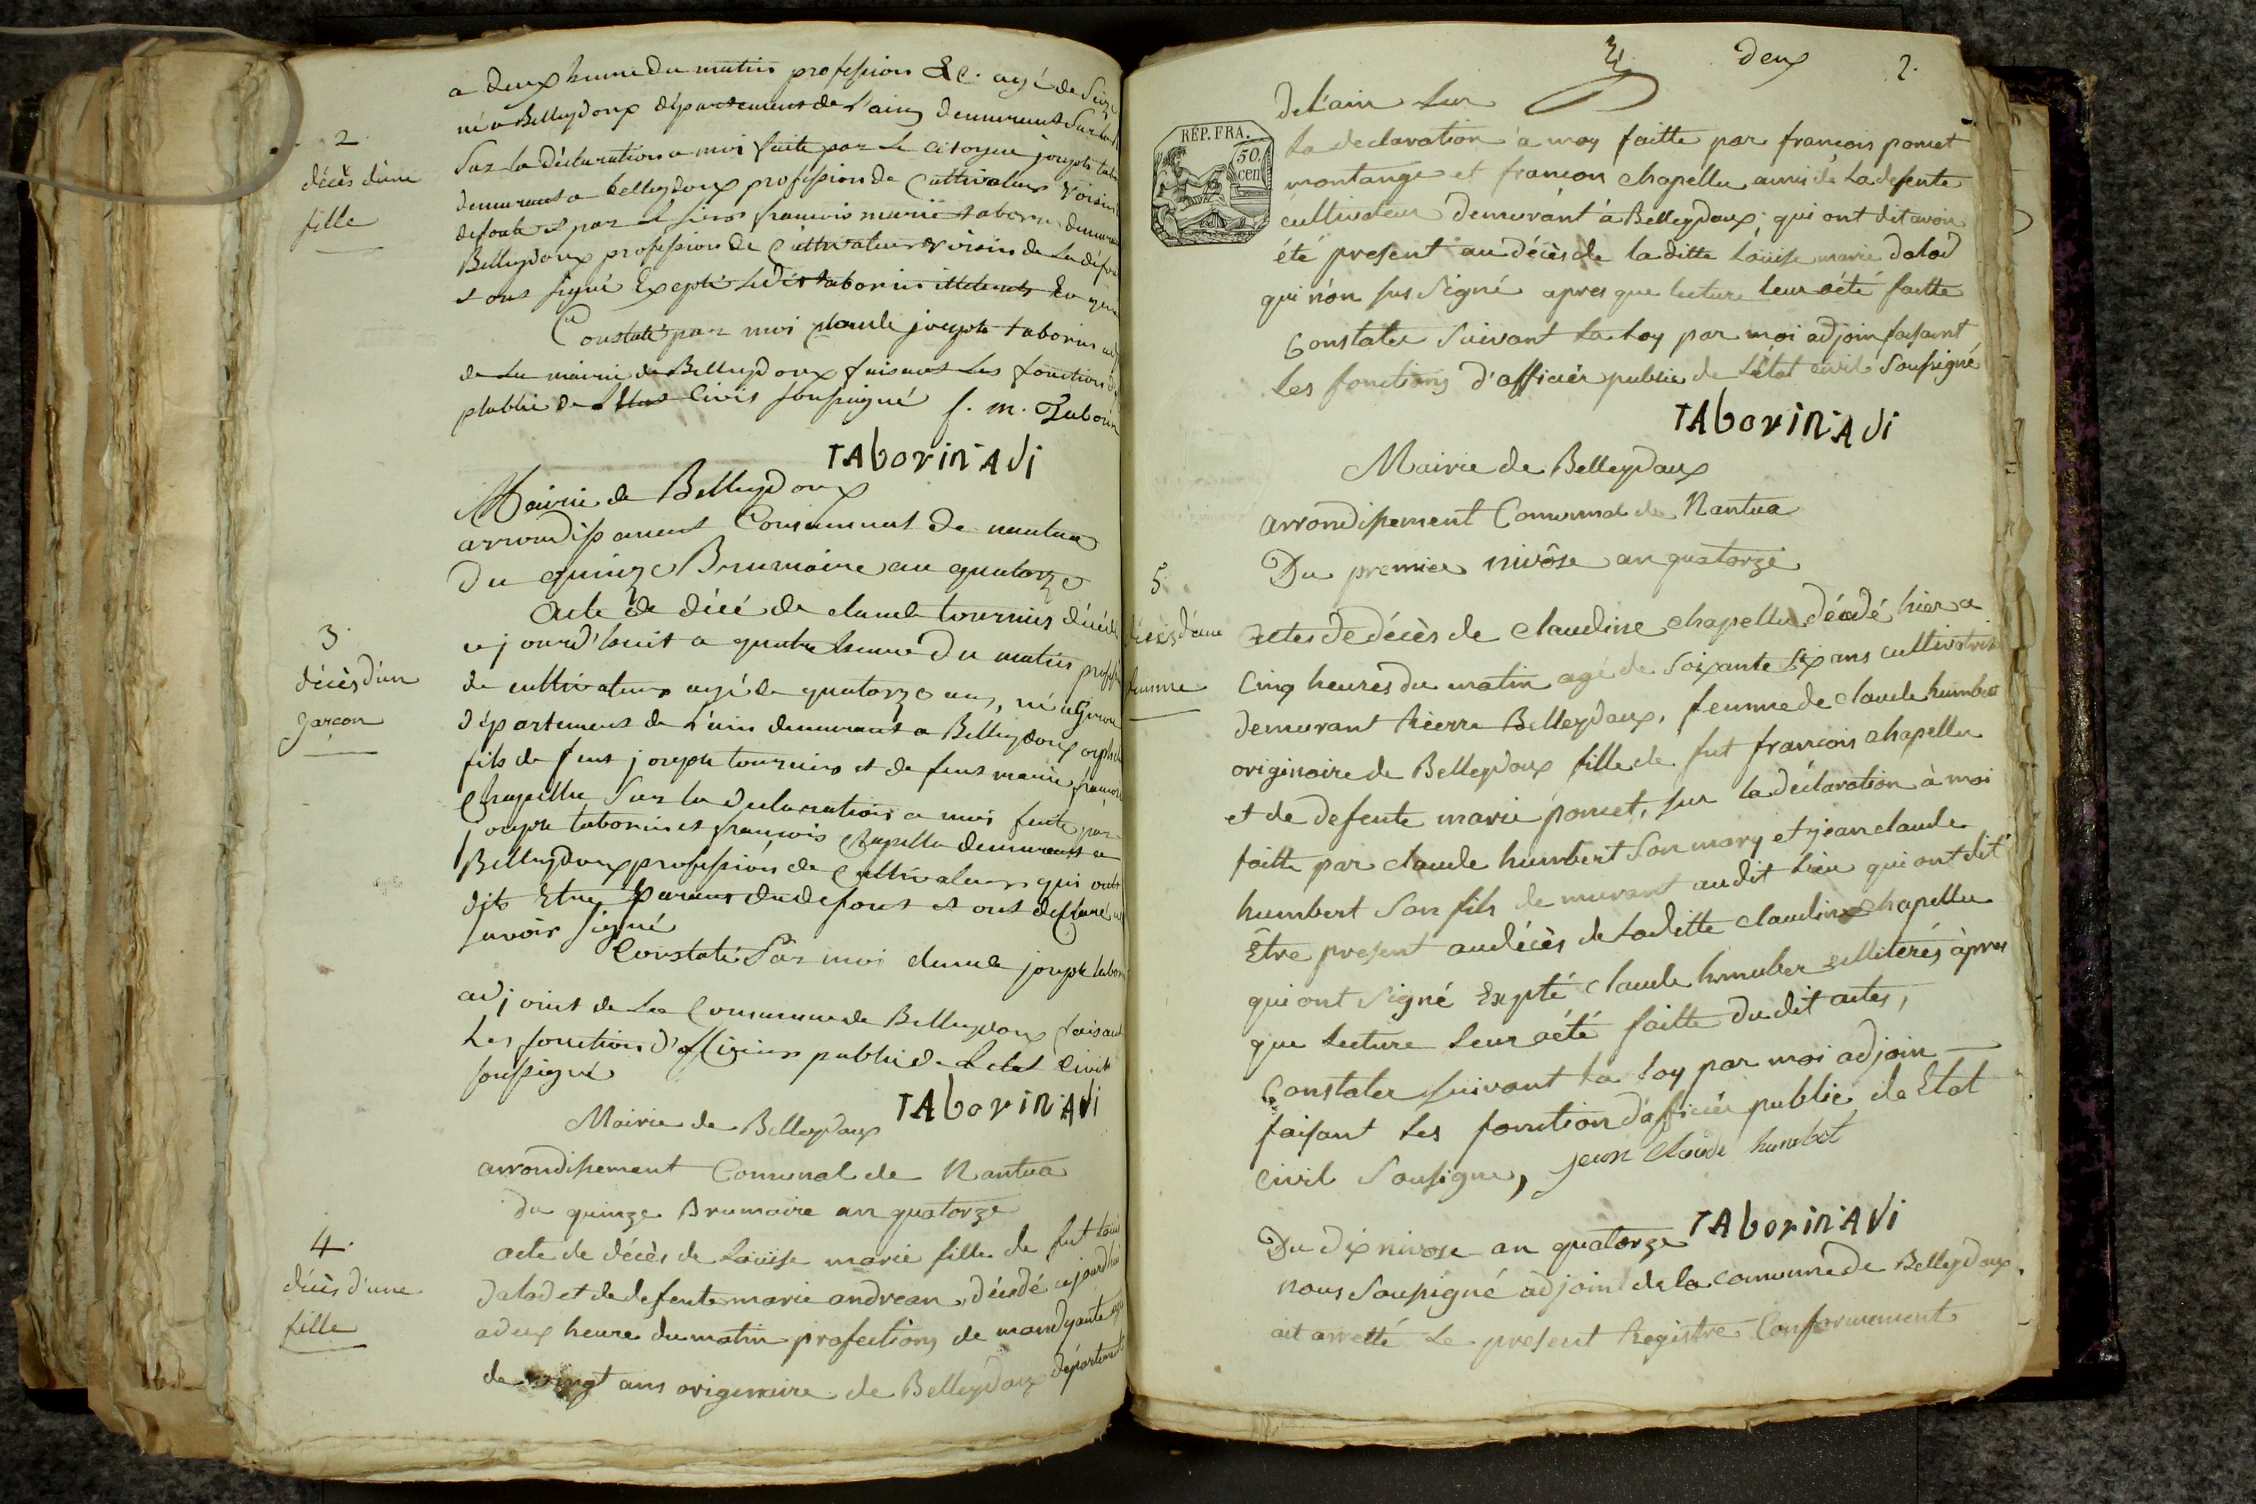 a deux heure du matin profession &c. agé de Seize
né a Belleydoux département de l'ain demeurant Sur
2
décès d'une
fille
Sur la déclaration a moi faite par le citoyen joseph
demeurant a belleydoux profession de Cultivateur voisin
defunte et par le sieur francois marie taborin demeurant
Belleydoux profession de Cultivateur voisin de la
et ont signé Excepté ledit taborin
Constaté par moi claude joseph taborin
de la mairie de Belleydoux faisant les fonction
plublic de civis soussigné f. m. Taborin
TAborin ADj
Mairie de Belleydoux
arrondissement Communal de nantua
Du quinze Brumaire an quatorze
3
décès d'un
garçon
Acte de décé de claude tournier décédé
ajourd'huit a quatre heure du matin
de cultivateur agé de quatorze ans, né a
département de l'ain demeurant a Belleydoux
fils de feut joseph tournier et de feut marie
Chapellu Sur la declaration a moi feute par
joseph taborin et françois Chapellu demeurant a
Belleydoux profession de Cultivateur qui ont
dits Etre parens du defont et ont declaré
savoir signé
Constaté Par moi claude joseph
adjoint de la Commune de Belleydoux faisant
Les fonction d'officier public de Letat Civile
soussigné
TAborin ADj
Mairie de Belleydoux
arrondissement Comunal de Nantua
du quinze Brumaire an quatorze
4.
décès d'une
fille
acte de décès de Loüise marie fille de fut
dalod et de defente marie andrean, décédé
a deux heure du matin profections de mandyante
de vingt ans origenaire de Belleydoux département
deux 2.
de l'ain sur
RÉP. FRA.
50.
cen
la declaration à moy faitte par françois poncet
montange et françon chapellu amis de la defente
cultivateur demurant à Belleydoux qui ont dit avoir
été present au décès de la ditte Loüise marie dalod
qui n'on sus Signé apres que lecture leur a été faitte
Constater Suivant la loy par moi adjoin faisant
les fonctions d'officier public de l'état civil Sousigné
TAborin ADj
Mairie de Belleydoux
arrondissement Comunal de Nantua
Du premier nivôse an quatorze
5.
décès d'une
femme
Actes de décès de claudine chapellu décédé hier a
Cinq heures du matin agé de Soixante Six ans cultivatrice
demurant hierre Belleydoux, femme de claude humbert
originoire de Belleydoux fille de fut francois chapellu
et de defente marie poncet, sur la déclaration à moi
faitte par claude humbert Son mary et jean claude
humbert Son fils de murant au dit lieu qui ont dit
Être present au décès de La ditte claudine chapellu
qui ont Signé Exepté claude humber illiterés àpres
que lecture leur a été faitte du dit actes,
Constater suivant la loy par moi adjoin
faisant les fonction d'afficier public de Etat
Civil Sousigne, jean claude humbet
TAborin ADj
Du dix nivose an quatorze
nous Soussigné adjoint de la comune de Belleydoux,
ait arretté le present Registre Conformement